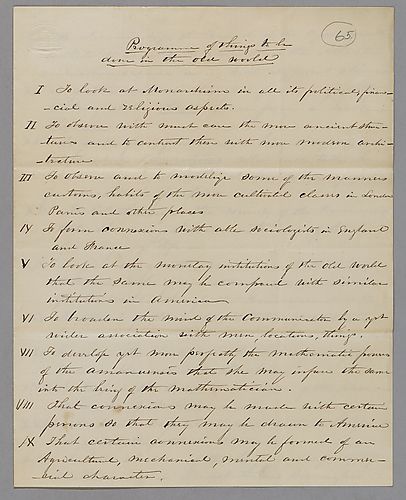 65
Programme of things to be
done in the old world
I To look at Monarchism in all its political, finan-
cial and Religious aspects.
II To observe with much care the more ancient struc-
tures and to contrast these with more modern archi-
tecture
III To observe and to modelize some of the manners
customs, habits of the more cultivated classes in London
Paris and other places
IV To form connexions with able sociologists in England
and France
V To look at the monetary institutions of the old world
that the same may be compared with similar
institutions in America
VI To broaden the mind of the Communicator by a yet
wider association with men, locations, things.
VII To develop yet more perfectly the mathematic powers
of the amanuensis that she may infuse the same
into the being of the mathematician.
VIII That connexions may be made with certain
persons so that they may be drawn to America
IX That certain connexions may be formed of an
Agricultural, mechanical, mental and commer-
cial character.